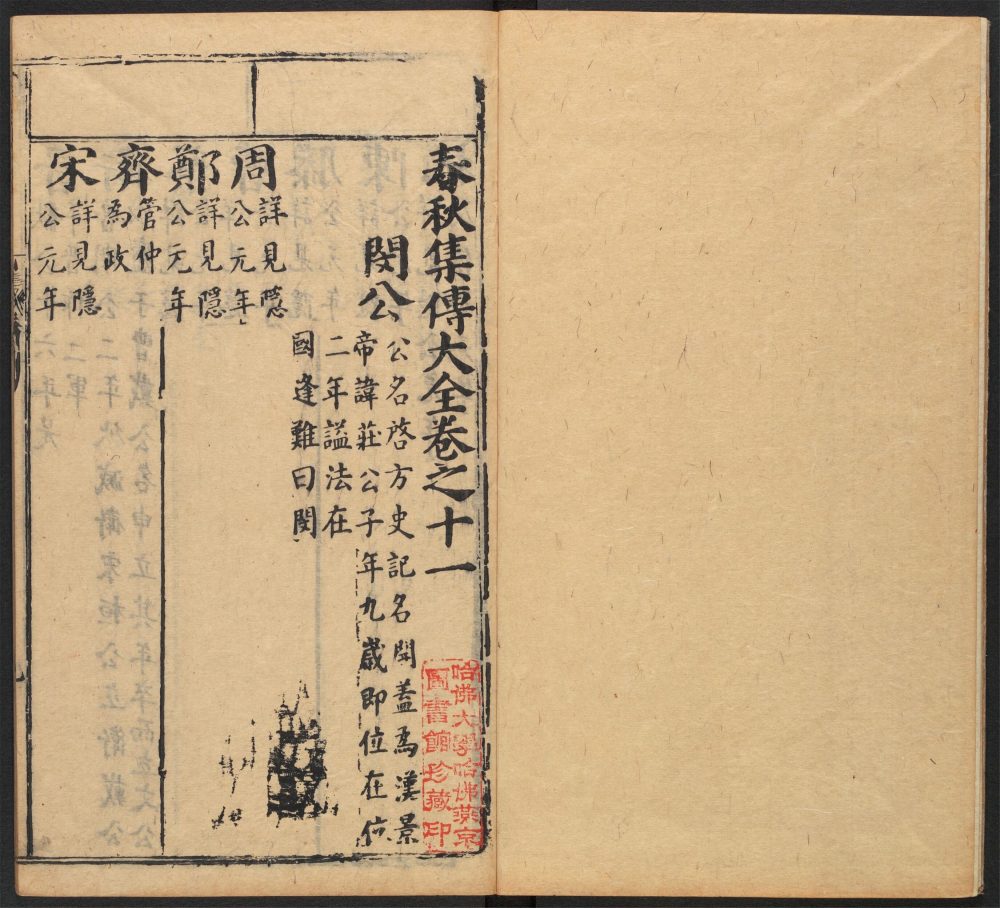 春秋集傳大全卷之十一
閔公
公名啓方史記名開蓋爲漢景
帝諱莊公子年九歲即位在位
二年謚法在
國逢難曰閔
周
詳見隱
公元年
鄭
詳見隱
公元年
齊
管仲
為政
宋
詳見隱
公元年
哈佛大學哈佛燕京
圖書館珍藏印